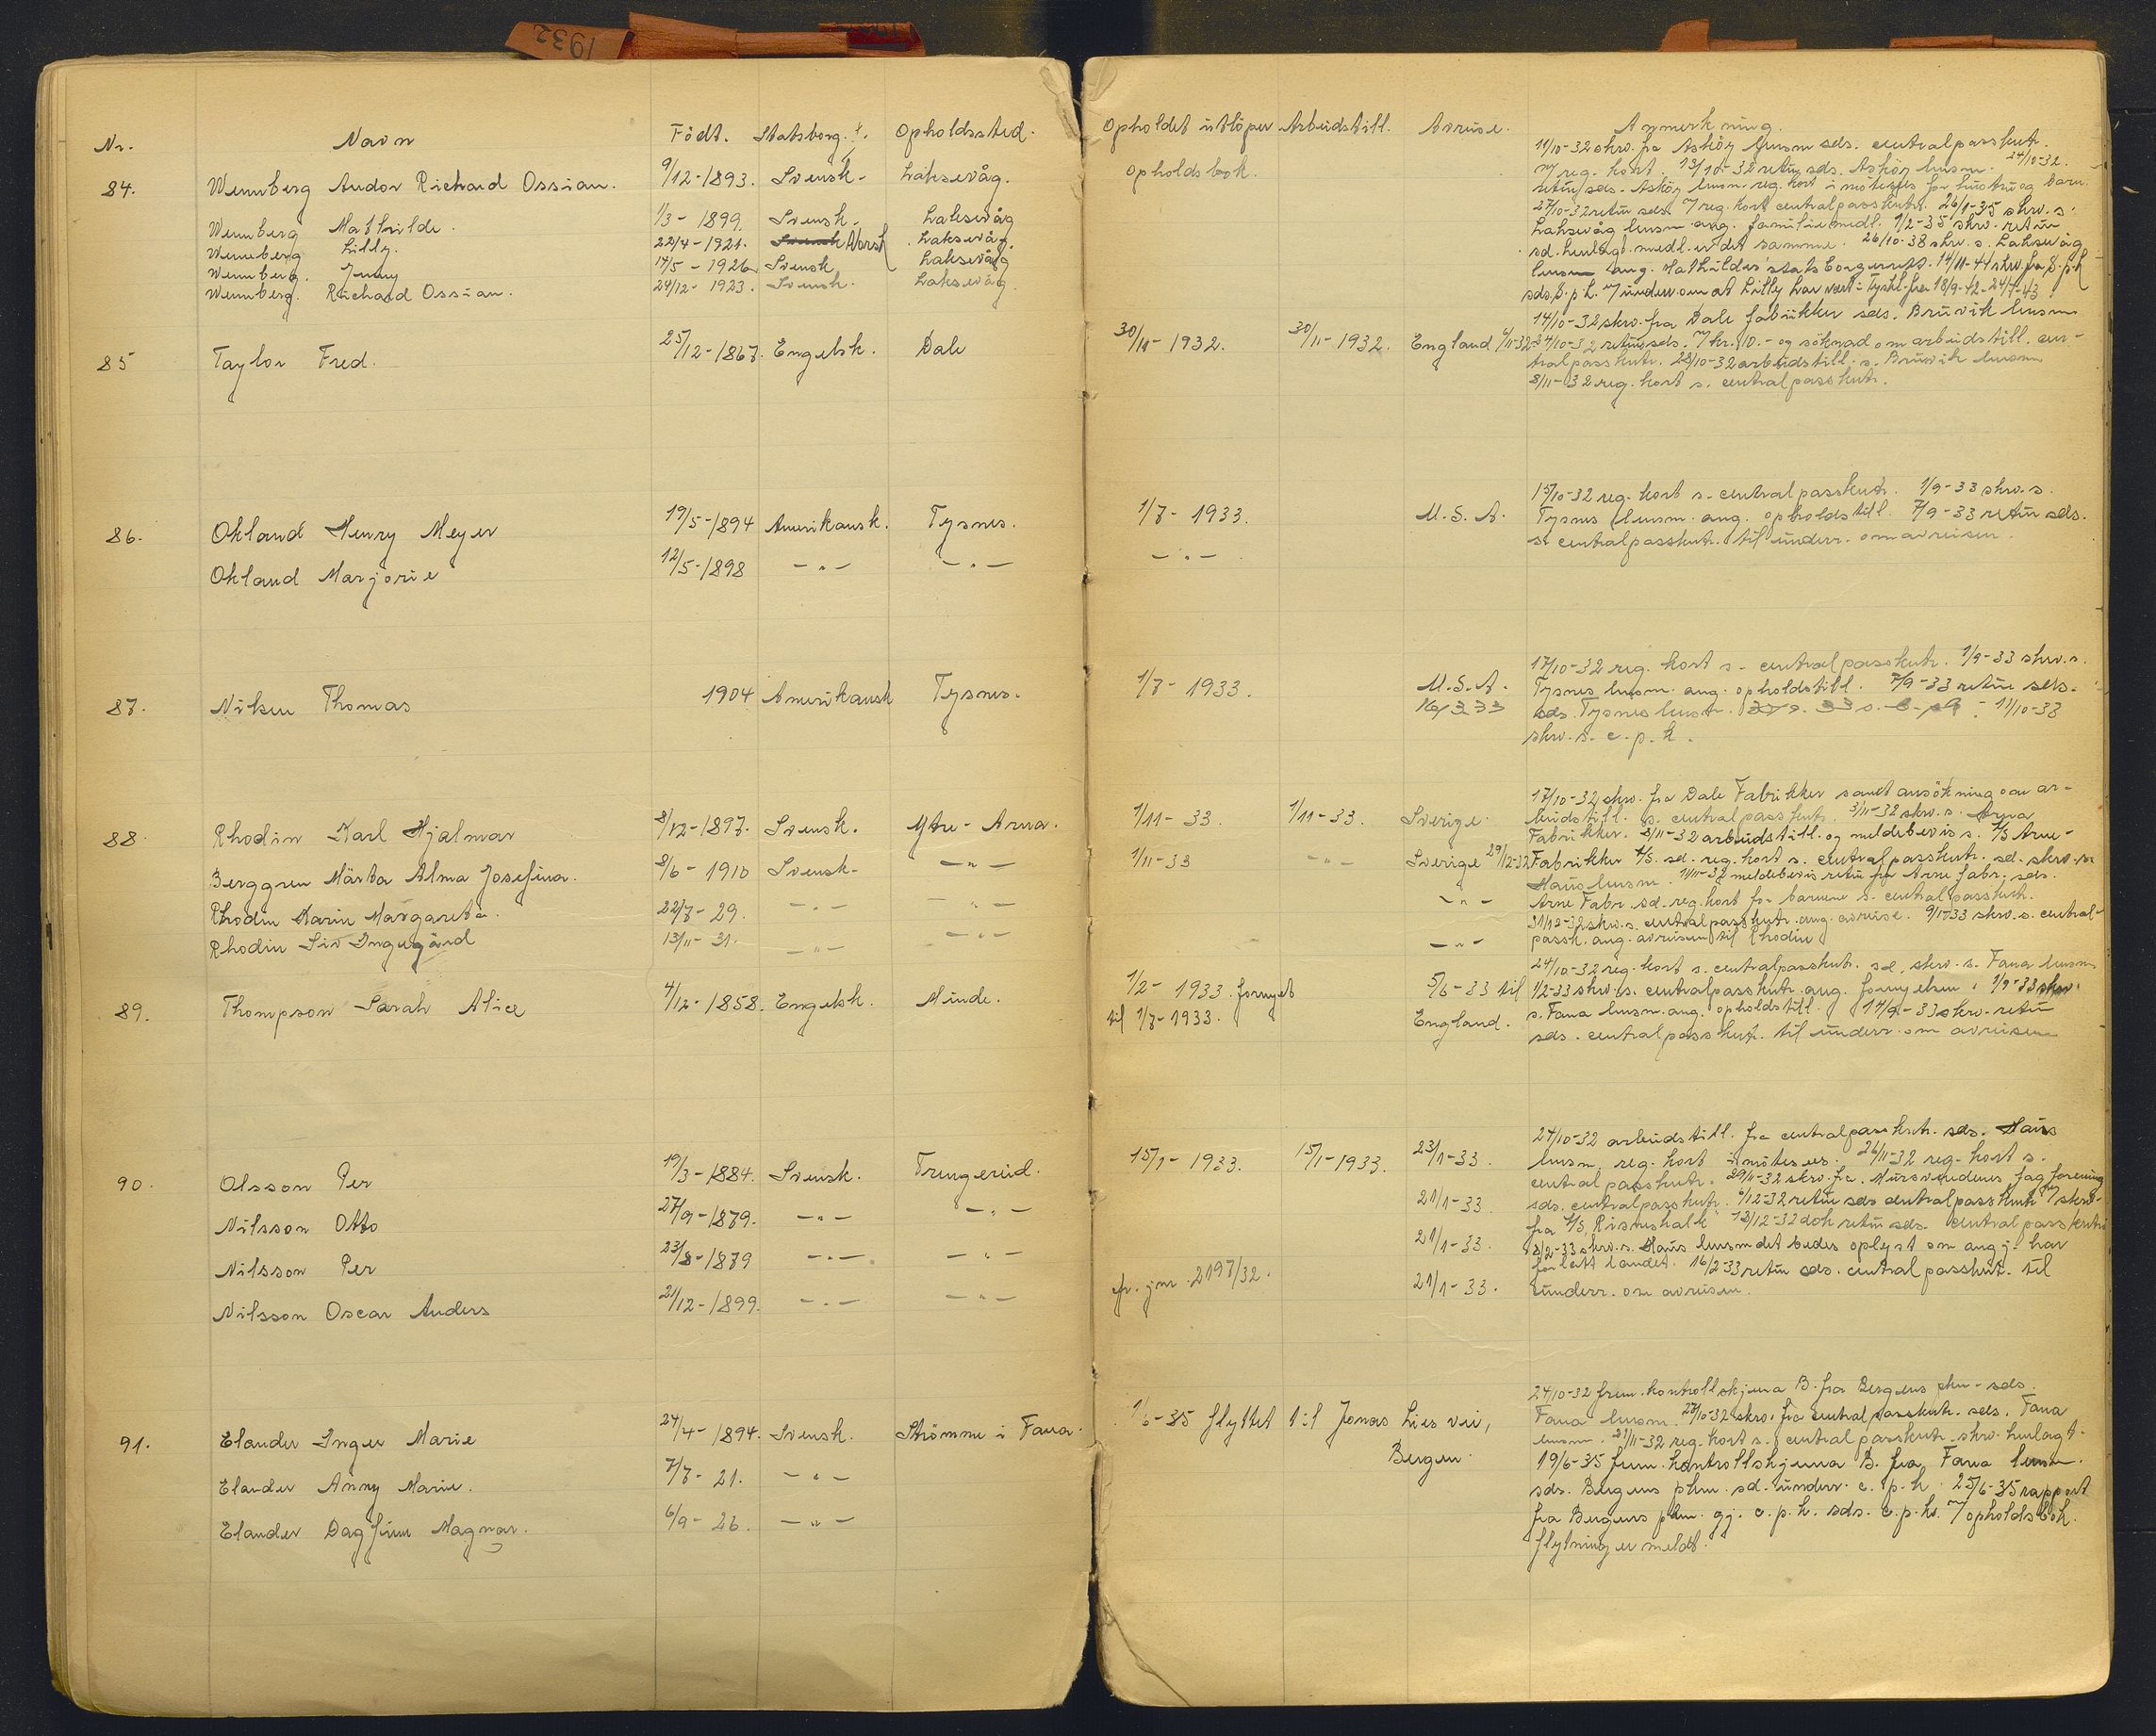 1932
Nr. Navn Födt. Statsborg. Opholdssted. Opholdet utlöper Arbeidstill. Avreise. Anmerkning.
84. Wennberg Andor Richard Ossian. 9/12-1893. Svensk. Laksevåg. Opholdsbok.
Wennberg Mathilde. 1/3-1899. Svensk. Laksevåg
Wennberg Lilly. 22/4-1921. Svensk Norsk Laksevåg.
Wennberg. Jenny 14/5-1926 Svensk Laksevåg
Wennberg. Richard Ossian. 24/12-1923. Svensk. Laksevåg
11/10-32 skrv. fra Asköy lensm. sds. centralpasskntr.
m/ reg. kort. 13/10-32 retur sds. Asköy lensm. 24/10-32.
retur sds. Asköy lensm. reg. kort imötesees for hustru og barn.
27/10-32 retur sds. m/ reg. kort centralpasskntr. 26/1-35 skrv. s.
Laksevåg lensm ang. familiemedl. 1/2-35 skrv. retur
sd. henlagt medl. er det samme. 26/10-38 skrv. s. Laksevåg
lensm ang. Mathildes statsborgerrett. 14/11-41 skrv. fra S.p.k
sds. S.p.k. m/ underr. om at Lilly har vært i Tyskl. fra 18/9-42-24/7-43.
85 Taylor Fred. 25/12-1867. Engelsk. Dale 30/11-1932. 30/11-1932. England 6/11-32
14/10-32 skrv. fra Dale fabrikker sds. Bruvik lensm
24/10-32 retur sds. m/ kr. 10.- og söknad om arbeidstill. cen-
tralpasskntr. 28/10-32 arbeidstill. s. Bruvik lensm
8/11-32 reg. kort s. centralpasskntr.
86. Okland Henry Meyer 19/5-1894 Amerikansk. Tysnes. 1/7-1933. U.S.A.
Okland Marjorie 12/5-1898 -"- -"- -"-
15/10-32 reg. kort s. centralpasskntr. 1/9-33 skrv. s.
Tysnes lensm. ang. opholdstill. 7/9-33 retur sds.
s. centralpasskntr. til underr. om avreisen.
87. Nilsen Thomas 1904 Amerikansk Tysnes. 1/7-1933. U.S.A.
17/10-32 reg. kort s. centralpasskntr. 1/9-33 skrv. s.
Tysnes lensm. ang. opholdstill. 7/9-33 retur sds.
sds. Tysnes lensm. 11/10-33
skrv. s. c.p.k.
88 Rhodin Karl Hjalmar 8/12-1897. Svensk. Ytre-Arna. 1/11-33. 1/11-33. Sverige.
Berggren Märta Alma Josefina. 8/6-1910 Svensk. -"- 1/11-33 -"- Sverige 29/12-32
Rhodin Karin Margareta. 22/7-29. -"- -"- -"-
Rhodin Siv Ingegärd 13/11-31. -"- -"- -"-
17/10-32 skrv. fra Dale Fabrikker samt ansökning om ar-
beidstill. s. centralpasskntr. 3/11-32 skrv. s. Arna
Fabrikker. 8/11-32 arbeidstill. og meldebevis s. A/S Arne-
Fabrikker A/S. sd. reg. kort s. centralpasskntr. sd. skrv. s.
Haus lensm. 11/11-32 meldebevis retur fra Arne fabr. sds.
Arne Fabr. sd. reg. kort for barnene s. centralpasskntr.
31/12-32 skrv. s. centralpasskntr. ang. avreise. 9/1-33 skrv. s. central-
passk. ang. avreisen til Rhodin
89. Thompson Sarah Alice 4/12-1858. Engelsk. Minde. 1/2-1933. fornyet 5/6-33 til
til 1/7-1933. England.
24/10-32 reg. kort s. centralpasskntr. sd. skrv. s. Fana lensm
1/2-33 skrv. s. centralpasskntr. ang. fornyelsen. 1/9-33 skrv.
s. Fana lensm. ang. opholdstill. 14/9-33 skrv. retur
sds. centralpasskntr. til underr. om avreisen
90. Olsson Per 19/3-1884. Svensk. Trengereid. 15/1-1933. 15/1-1933. 23/1-33.
Nilsson Otto 27/9-1879. -"- -"- 21/1-33
Nilsson Per 23/8-1879 -"- -"- 21/1-33.
Nilsson Oscar Anders 21/12-1899. -"- -"- cfr. jnr. 2197/32. 21/1-33.
24/10-32 arbeidstill. fra centralpasskntr. sds. Haus
lensm. reg. kort imötesees. 26/11-32 reg. kort s.
centralpasskntr. 29/11-32 skrv. fra Mursvendenes fagforening
sds. centralpasskntr. 6/12-32 retur sds centralpasskntr m/ skrv.
fra A/S 13/12-32 dok retur sds. centralpasskntr
3/2-33 skrv. s. Haus lensm det bedes oplyst om angj. har
forlatt landet. 16/2-33 retur sds. centralpasskntr. til
underr. om avreisen.
91. Elander Inger Marie 24/4-1894. Svensk. Strömme i Fana. 1/6-35 flyttet til Jonas Lies vei,
Bergen.
Elander Anny Marie. 7/7-21. -"-
Elander Dagfinn Magnar. 6/9-26. -"-
24/10-32 frem. kontrollskjema B. fra Bergens pkm. sds.
Fana lensm. 27/10-32 skrv. fra centralpasskntr. sds. Fana
lensm. 21/11-32 reg. kort s. centralpasskntr. skrv. henlagt.
19/6-35 frem. kontrollskjema B. fra Fana lensm.
sds. Bergens pkm. sd. underr. c.p.k. 25/6-35 rapport
fra Bergens pkm. gj. c.p.k. sds. c.p.k. m/ opholdsbok.
flytning er meldt.